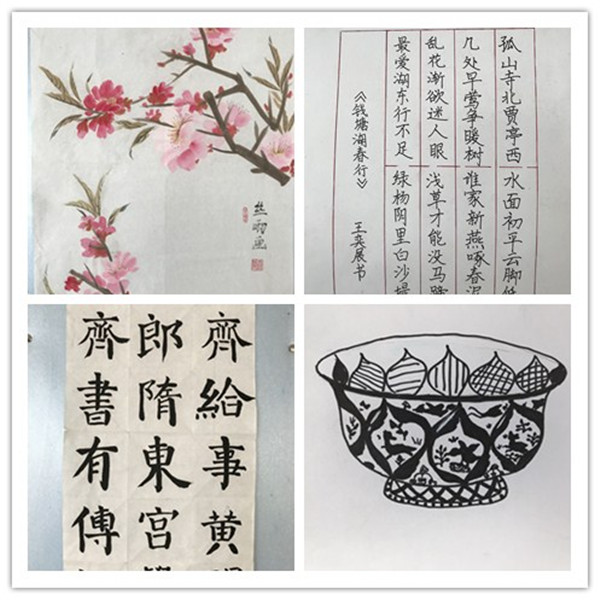 孤山寺北贾亭西 水面初平云脚低
几处早莺争暖树 谁家新燕啄春泥
乱花渐欲迷人眼 浅草才能没马蹄
最爱湖东行不足 绿杨阴里白沙堤
《钱塘湖春行》 王奕展书
齊給事黃
郎隋東宮
齊書有傳